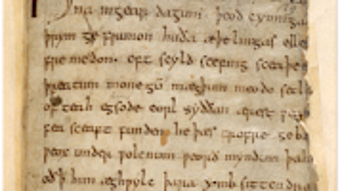 na ingear dagum. þeod cyninga
þrym ge frunon huða æþelingas elle
fre medon. oft scyld scefing sceaþe
þreatum monegū mægþum meodo setl
of teah egsode eorl syððan ærest ƿear
fea sceaft funden he þæs frofre geba
ƿeox under ƿolcnum ƿeorð myndum þah
oð ꝥ him æghƿylc þara ymb sittendra